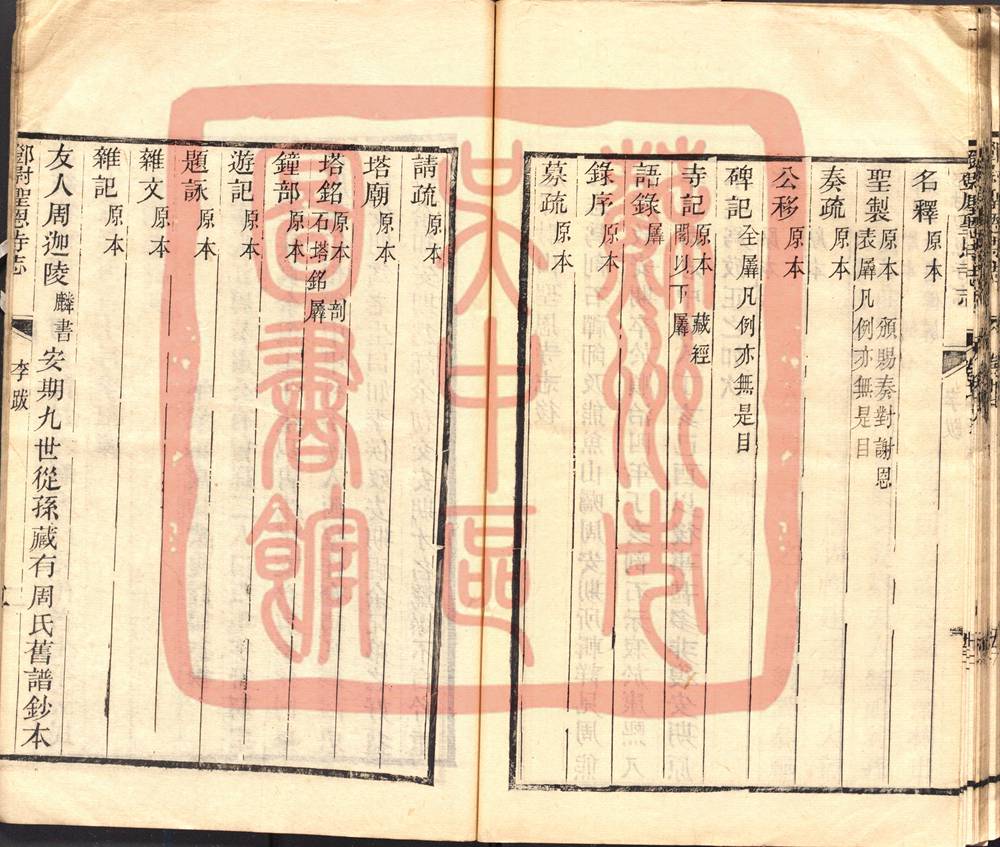 名釋原本
聖製原本 頒賜奏對謝恩表羼凡例亦無是目
奏疏原本
公移原本
碑記全羼凡例亦無是目
寺記原本 藏經閣以下羼
語錄羼
錄序原本
募疏原本
請疏原本
塔廟原本
塔銘原本 剖石塔銘羼
鐘部原本
遊記原本
題詠原本
雜文原本
雜記原本
友人周迦陵麟書安期九世從孫藏有周氏舊譜鈔本
鄧尉聖恩寺志
李跋
蘇州市吳中區圖書館